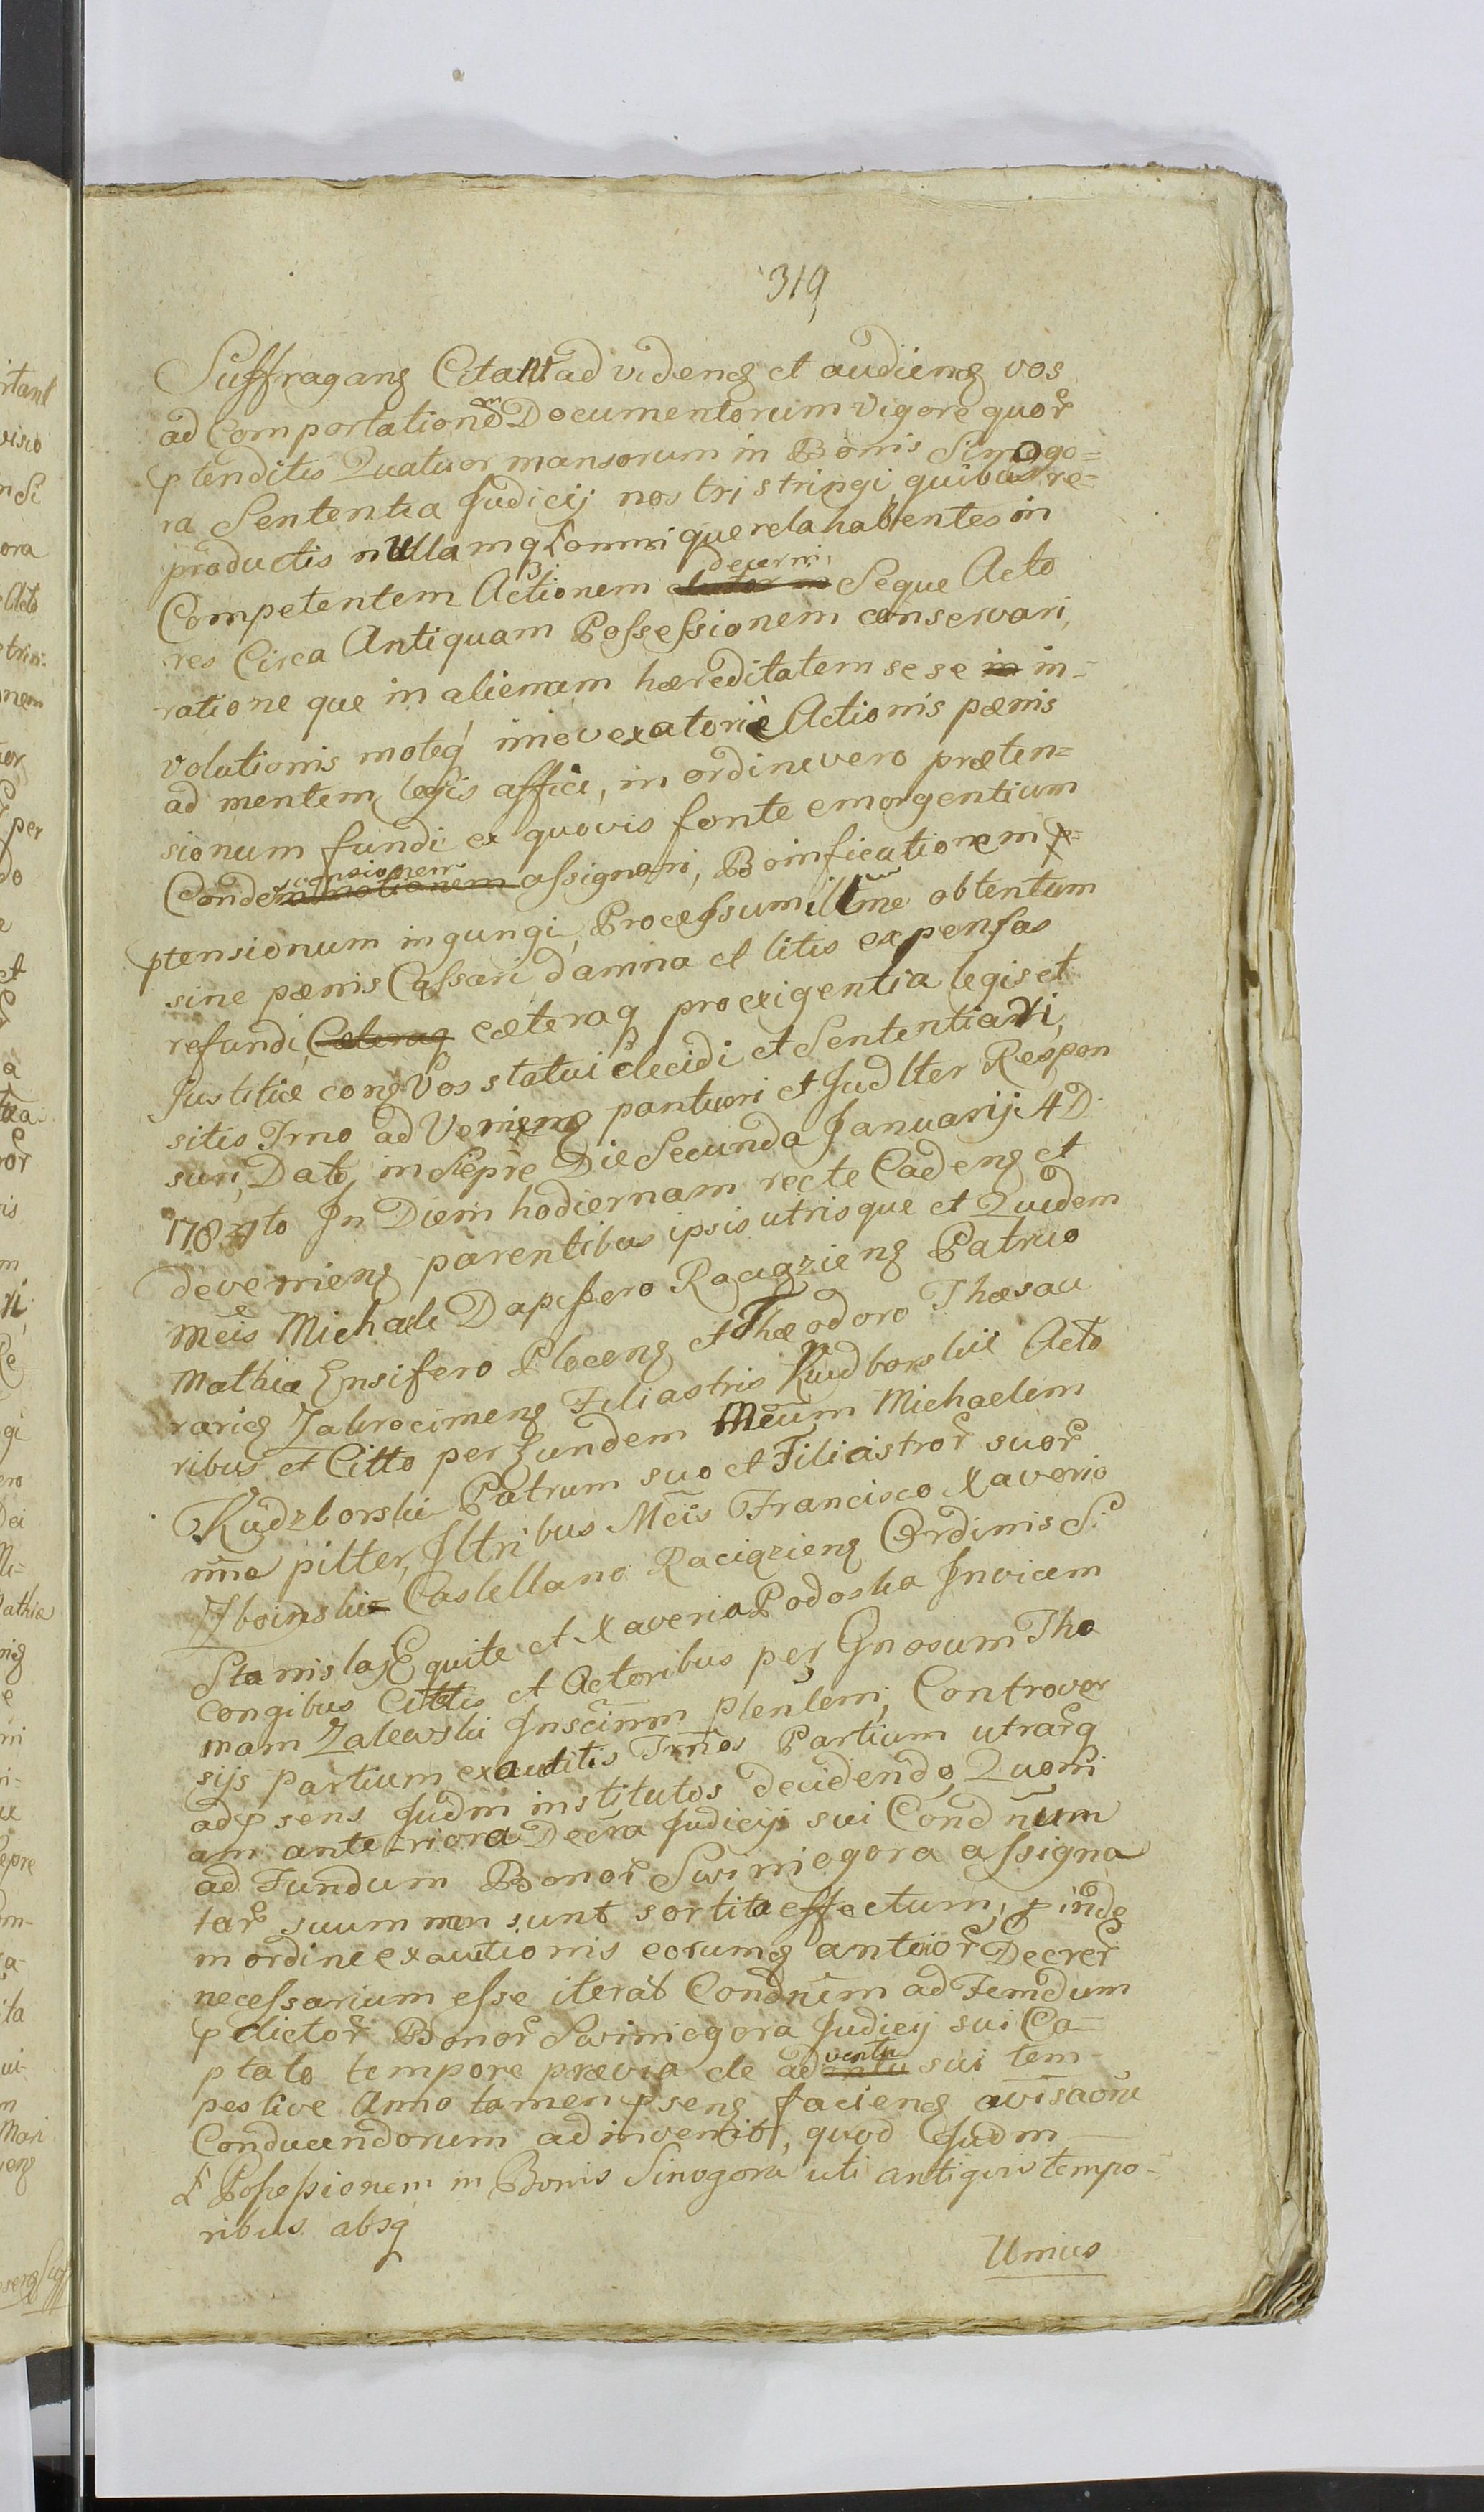 319
Suffragang Citant ad videng et audieng vos
ad Comportationem Documentorum vigore quor
ptenditis Quatuor mansorum in Bonis Sinogo=
ra Sententia Judicij nostri stringi, quibus re=
productis nullamq querela habentes in
Competentem Actionem decerni Seque Acto
res Circa Antiquam Possessionem conservari,
ratione que in alienam hæreditatem sese in in-
volutionis moteq vexatoriæ Actionis pænis
ad mentem legis affici, in ordine vero præten=
sionum fundi ex quovis fonte emergentium
Condescensionem assignari, Boinficationem p=
ptensionum ingungi, Processum illme obtentum
sine pænis Cassari damna et litis expensas
refundi, Cæteraq cæteraq pro exigentia legis et
Justitiæ cong Vos statui decidi et Sententiari,
sitis Trno ad Venieng pantuori et Judlter Respon
suri, Dat, in Siepre Die Secunda Januarij A D
1784to In Diem hodiernam recte Cadeng et
devenieng parentibus ipsis utrisque et Quidem
Mcis Michaele Dapifero Raciązieng Patruo
Mathia Ensifero Ploceng et Theodoro Thæsau
rarieg Zakrocimeng Filiastris Kudborskie Acto
ribus et Citto per Eundem Mcum Michaelem
Kudzborski Patrum suo et Filiastror suor
nne pitter, Iltribus Mcis Francisco Xaverio
Zboinskie Castellano Raciązieng Ordinis S.
Stanislaj Equite et Xaveria Podoska Invicem
Congibus Cittis et Actoribus per Gnosum Tho
mam Zalewski plenlem, Controver
sijs partium exauditis Trnos Partium utrarq
ad psens Judm institutos decidendo, Quoni
am anteriora Decra Judicij sui Condnum
ad Fundum Bonor Swiniogora assigna
tar suum non sunt sortita effectum, p inde
in ordine exautionis eorumq antrior Decrer
necessarium esse iterat Condnem ad Fundum
pdictor Bonor Swiniogora Judicij sui Ca-
ptato tempore prævia de adventu sui tem-
pestive Anno tamen pseng facieng avisaone
Conducendorum adinvenit, quod Judm
Possessionem in Bonis Sinogora uti antiquis tempo-
ribus absq
Unius